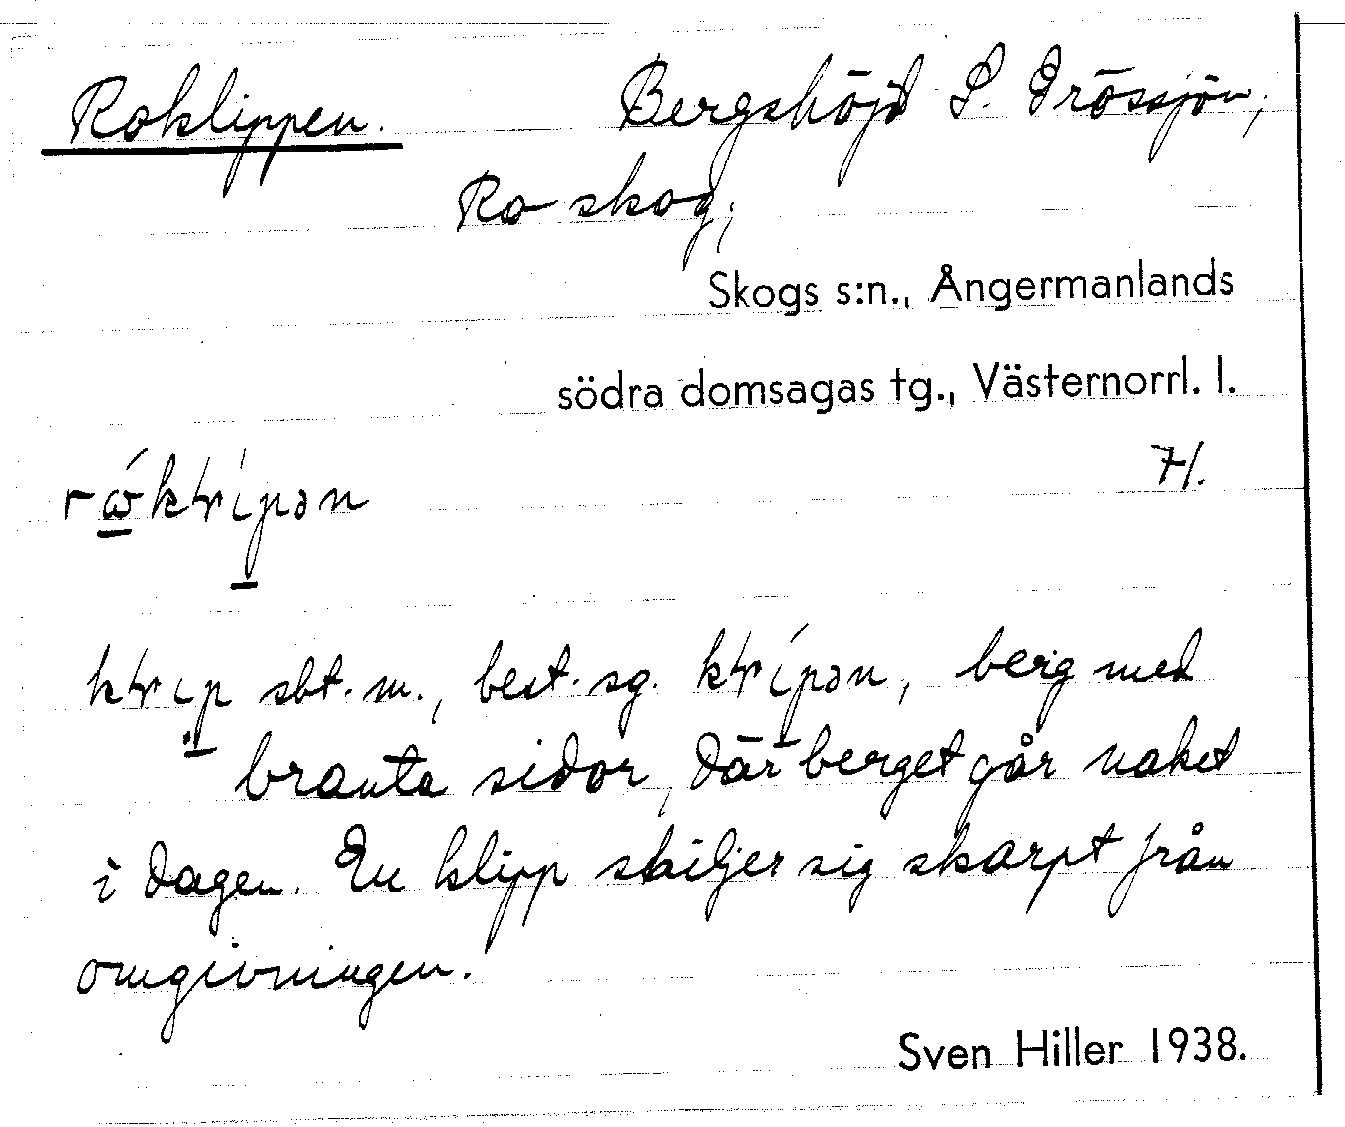 Roklippen. Bergshöjd S. Drössjön,
Ro skog,
Skogs s:n., Ångermanlands
södra domsagas tg., Västernorrl. l.
H.
sbt. m., best. sg. berg med
branta sidor, där berget går naket
i dagen. En klipp skiljer sig skarpt från
omgivningen.
Sven Hiller 1938.